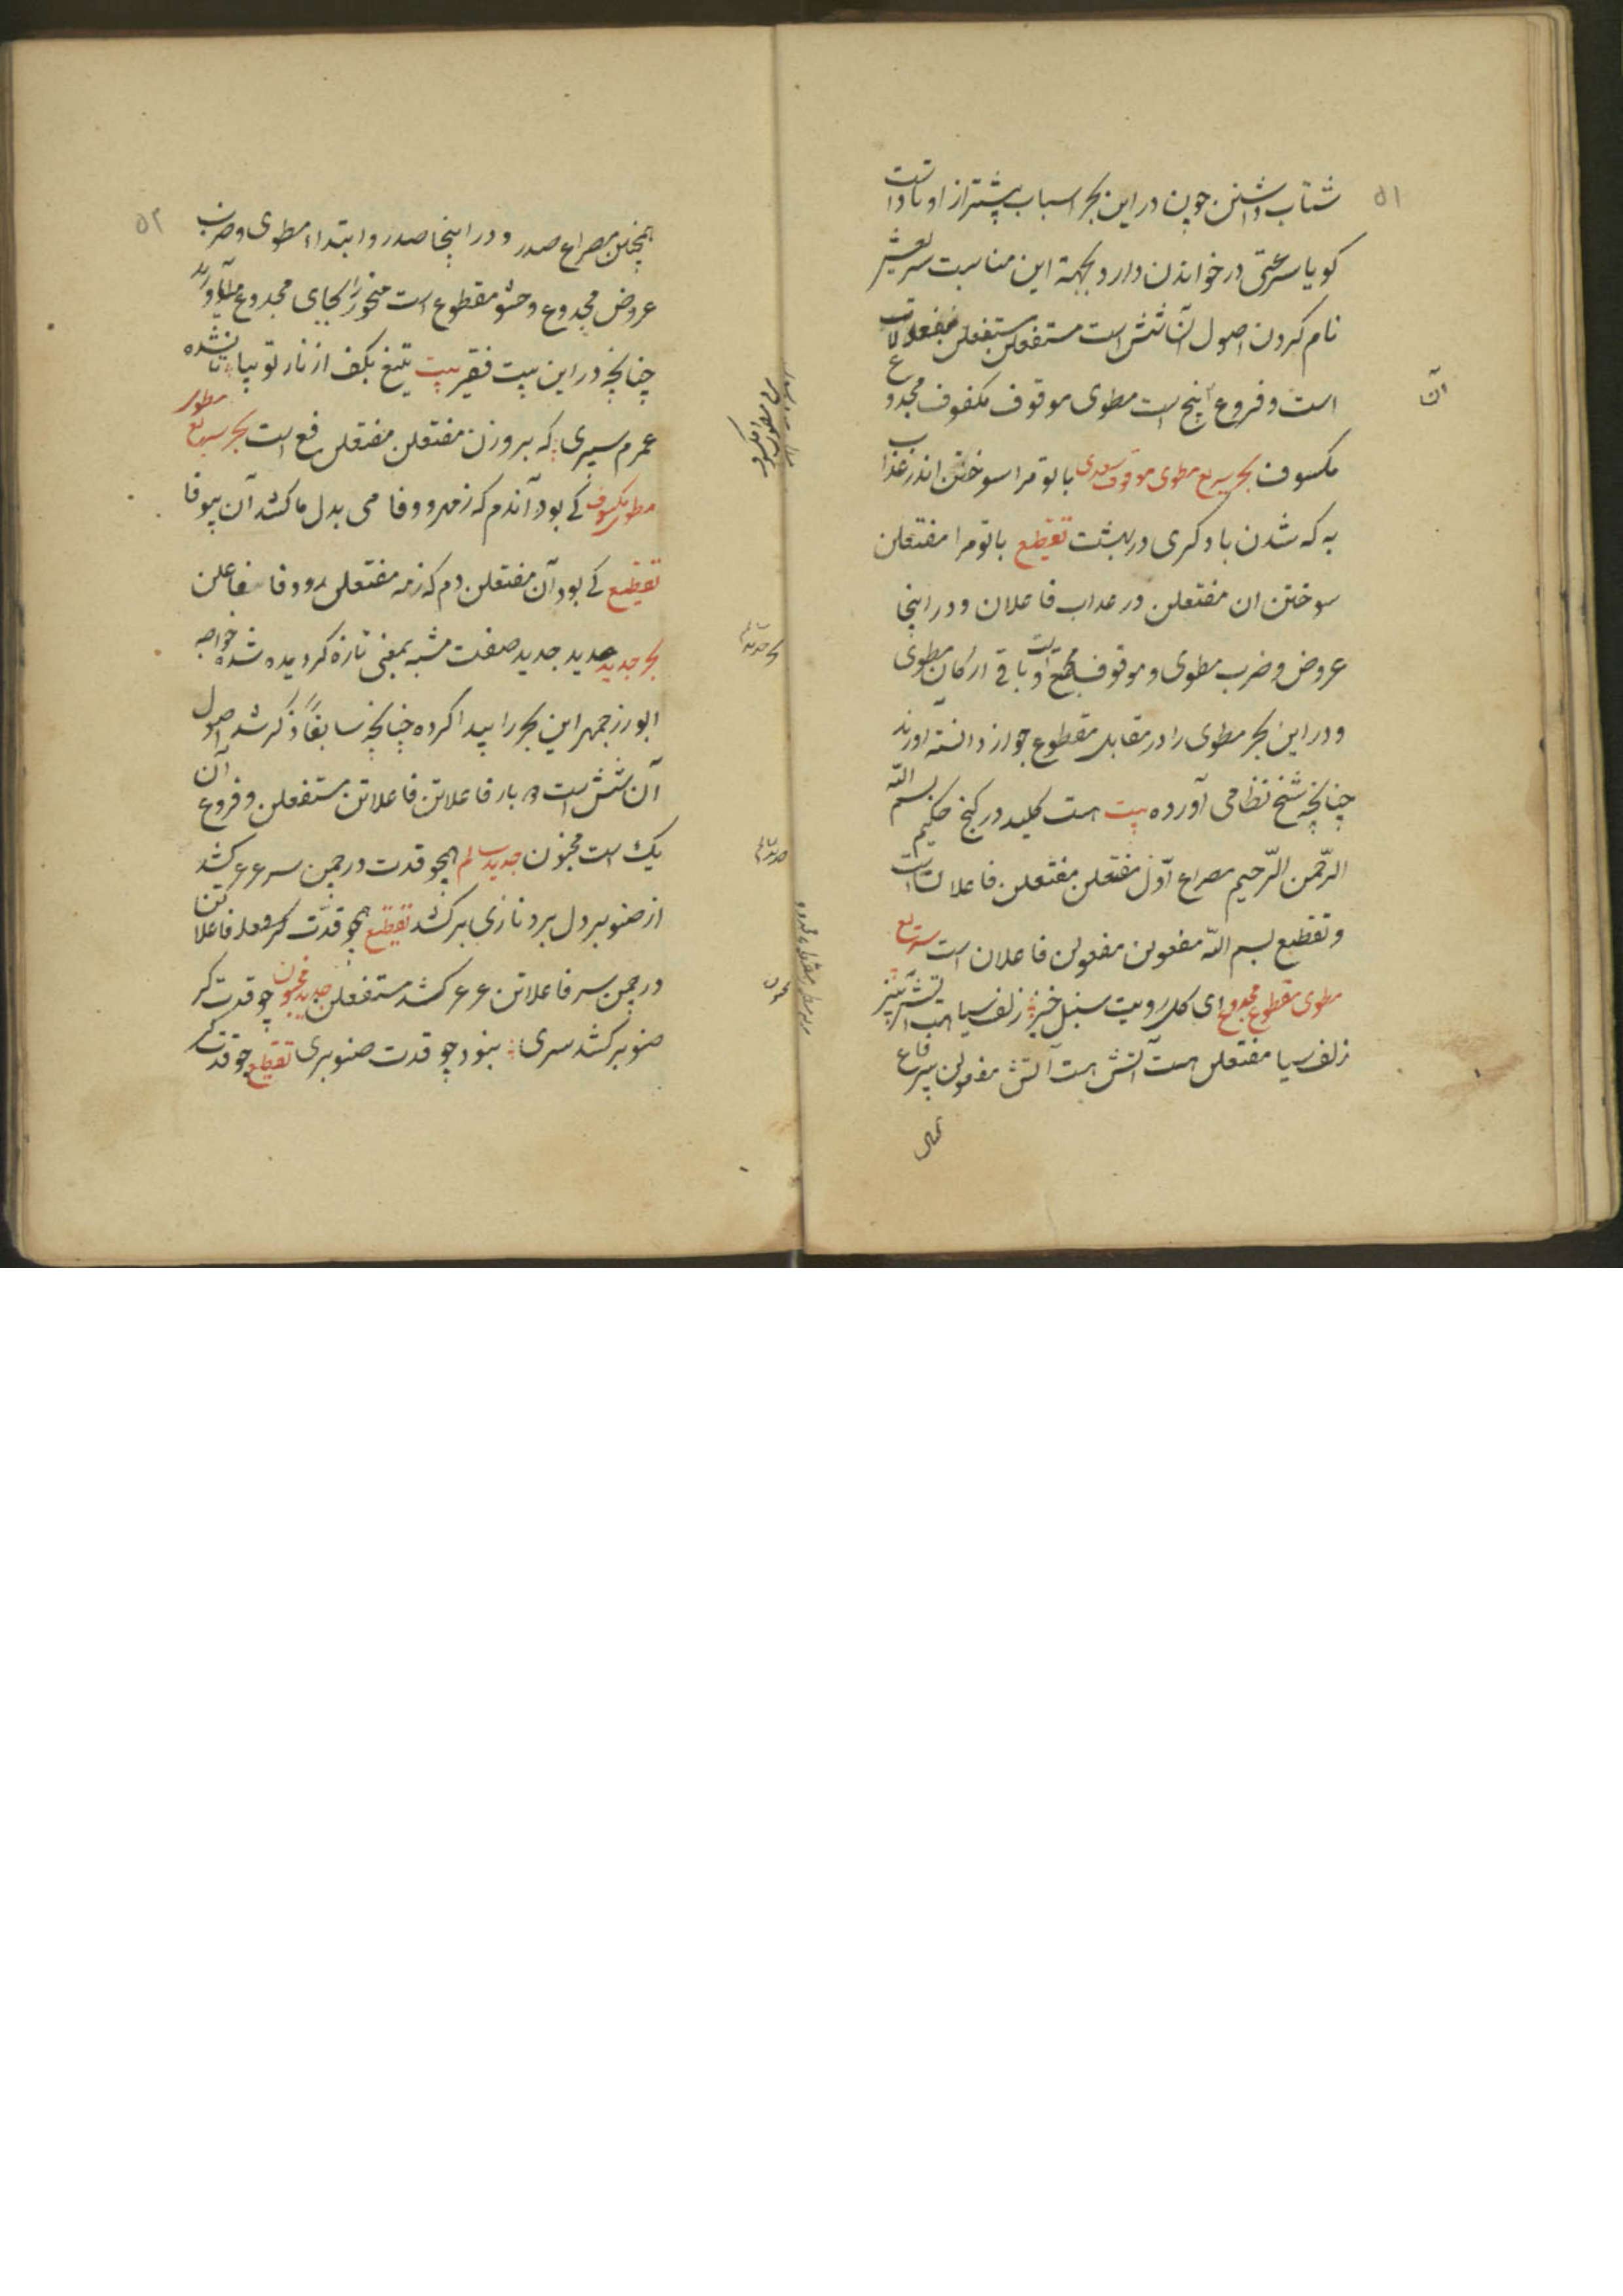 ۵۱
شتاب داشتن چون در این بحر اسباب پیشتر از اوتاد است
کویا سرعتی در خواندن دارد بجهة این مناسبت سریعش
نام کردن اصول آن شش است مستفعلن مستفعلن مفعولات
است و فروع آن پنج است مطوی موقوف مکفوف مجدوع
مکسوف بحر سریع مطوی موقوف سعدی با تو مرا سوختن اندر عذاب
به که شدن با دکری در بهشت تقطیع با تو مرا مفتعلن
سوختن ان مفتعلن در عداب فاعلان و در اینجا
عروض و ضرب مطوی و موقوف است و باقی ارکان مطوی
و در این بحر مطوی را در مقابل مقطوع جواز دانسته اورند
چنانچه شیخ نظامی آورده بیت هست کلید در کنج حکیم بسم الله
الرّحمن الرّحیم مصراع اوّل مفتعلن مفتعلن فاعلان است
و تقطیع بسم الله مفعولن مفعولن فاعلان است سریع
مطوی مقطوع مجدوع ای کل رویت سنبل خیز زلف سیاهت
زلف سیا مفتعلن هست آتش مفعولن بیز فاع
۵۲
همچنین مصراع صدر و در اینجا صدر و ابتداء مطوی و ضرب
عروض مجدوع و حشو مقطوع است منحور را بجای مجدوع میآورند
چنانچه در این بیت فقیر بیت تیغ بکف از ناز تو بیا تا نشده
عمرم سپری که بر وزن مفتعلن مفتعلن فع است بحر سریع مطوی
مطوی مکسوف کی بود آندم که زمهر و وفا می بدل ما کشد آن بیوفا
تقطیع کی بود آن مفتعلن دم که زمه مفتعلن رو وفا فاعلن
بحر جدید جدید صفت مشبه بمعنی تازه کردیده شده خواجه
ابوزرجمهر این بحر را پیدا کرده چنانچه سابقاً ذکر شد اصول
آن شش است بار فاعلاتن فاعلاتن مستفعلن و فروع آن
یک است مخبون جدید سالم همچو قدت در چمن سر عرعر کشد
از صنوبر دل برد نازی بر کشد تقطیع همچو قدّت فاعلاتن
در چمن سر فاعلاتن عرعر کشد مستفعلن جدید مخبون چو قدت کر
صنوبر کشد سری بنود چو قدت صنوبری تقطیع چو قدت کر